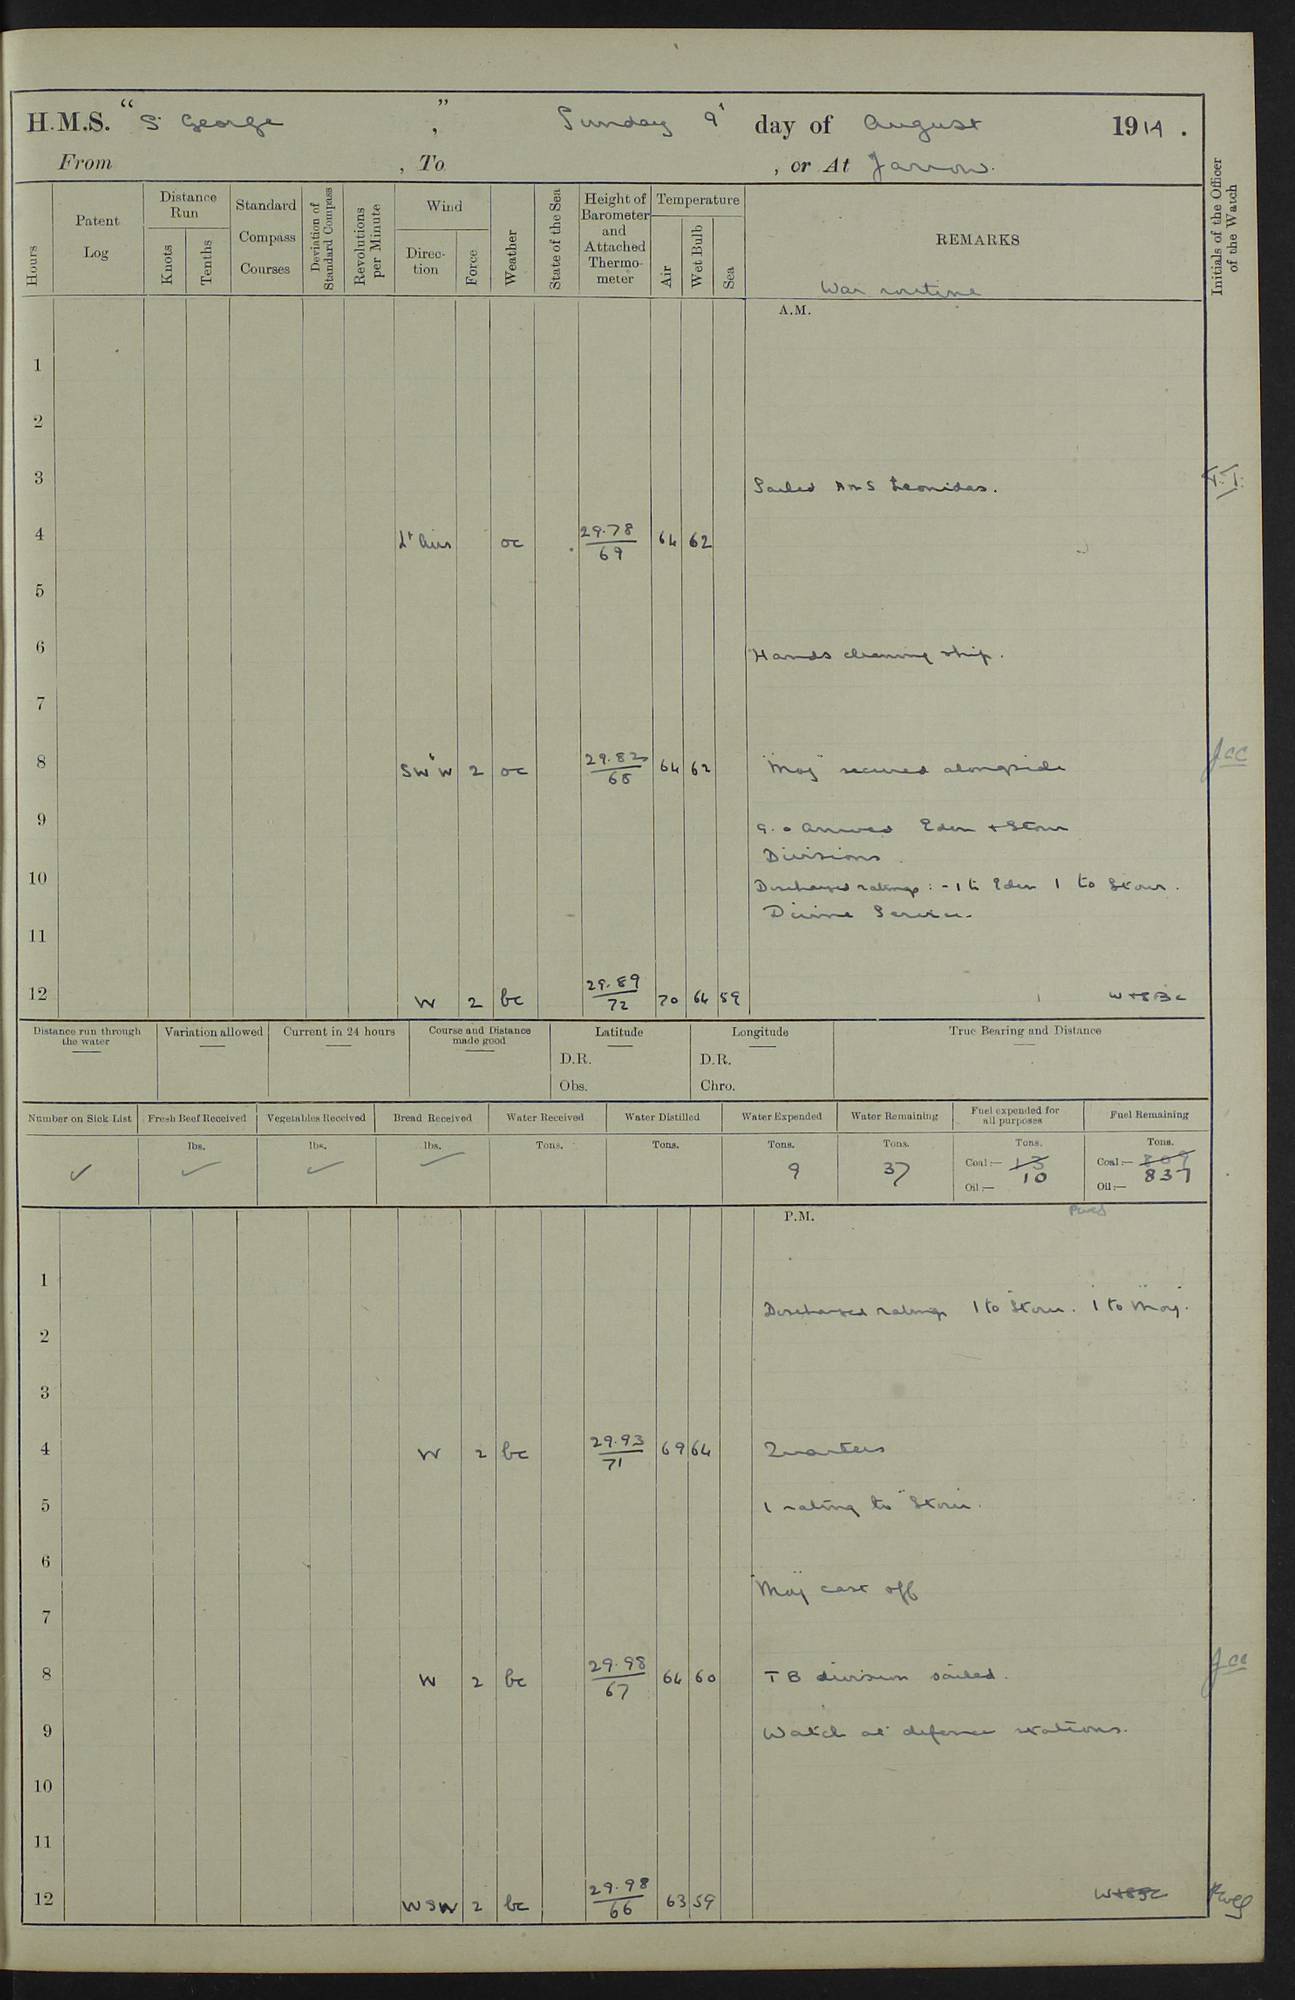 H.M.S. "St George", Sunday 9th day of August 1914.
From , To , or At Jarrow.
Hours
Patent Log
Distance Run
Knots
Tenths
Standard Compass Courses
Deviation of Standard Compass
Revolutions per Minute
Wind
Direction
Force
Weather
State of the Sea
Height of Barometer and Attached Thermometer
Temperature
Air
Wet Bulb
Sea
REMARKS
Initials of the Officer of the Watch
War routine
A.M.
1
2
3
Sailed HMS Leonidas.
4 Lt Airs oc 29.78/69 64 62
5
6
Hands cleaning ship.
7
8 SW'W 2 oc 29.82/68 64 62 "Moy" secured alongside JCC
9
9.0 Arrived Eden + Stour
Divisions
10 Discharged ratings :- 1 to Eden 1 to Stour.
Divine Service.
11
12 W 2 bc 29.89/72 70 64 59
Distance run through the water
Variation allowed
Current in 24 hours
Course and Distance made good
Latitude
D.R.
Obs.
Longitude
D.R.
Chro.
True Bearing and Distance
Number on Sick List ✓
Fresh Beef Received lbs. ✓
Vegetables Received lbs. ✓
Bread Received lbs. ✓
Water Received Tons.
Water Distilled Tons.
Water Expended Tons. 9
Water Remaining Tons. 37
Fuel expended for all purposes Tons. Coal:— 13 10 Oil:—
Fuel Remaining Tons. Coal:— 809 837 Oil:—
P.M.
1
Discharged ratings 1 to Stour. 1 to "Moy".
2
3
4 W 2 bc 29.93/71 69 64 Quarters
5 1 rating to "Stour".
6
"Moy" cast off
7
8 W 2 bc 29.98/67 64 60 T B division sailed. JCC
9 Watch at defence stations.
10
11
12 WSW 2 bc 29.98/66 63 59